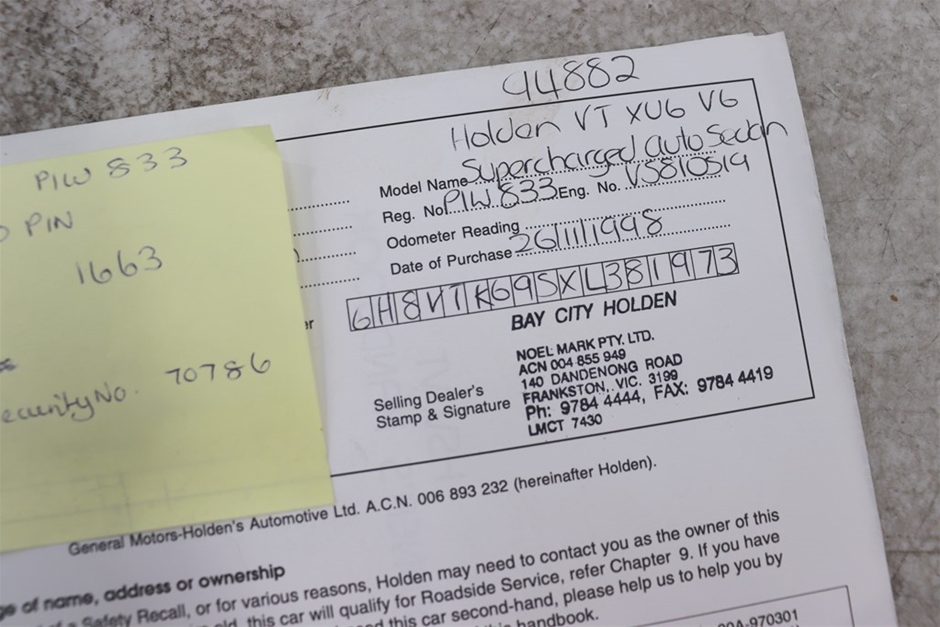 94882
Holden VT XU6 V6
Supercharged auto Sedan
Model Name
Reg. No. PIW 833 Eng. No. VS810519
Odometer Reading
Date of Purchase 26/11/1998
6H8VTK69SXL381973
BAY CITY HOLDEN
NOEL MARK PTY. LTD.
ACN 004 855 949
140 DANDENONG ROAD
FRANKSTON, VIC. 3199
Ph: 9784 4444, FAX: 9784 4419
LMCT 7430
Selling Dealer's
Stamp & Signature
PIW 833
PIN
1663
ecurity No. 70786
General Motors-Holden's Automotive Ltd. A.C.N. 006 893 232 (hereinafter Holden).
ge of name, address or ownership
of a Safety Recall, or for various reasons, Holden may need to contact you as the owner of this
old, this car will qualify for Roadside Service, refer Chapter 9. If you have
this car second-hand, please help us to help you by
this handbook.
0A-970301